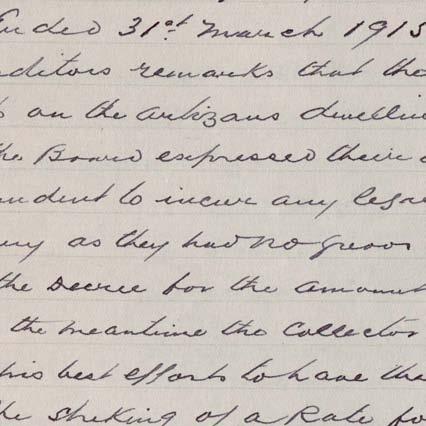 Ended 31st March 1915
auditors remarks that the
on the artizans dwellin
the Board expressed their
ndent to incur any legal
as they had no
the Decree for the amount
the meantime the Collector
his best efforts to have the
the striking of a Rate fo